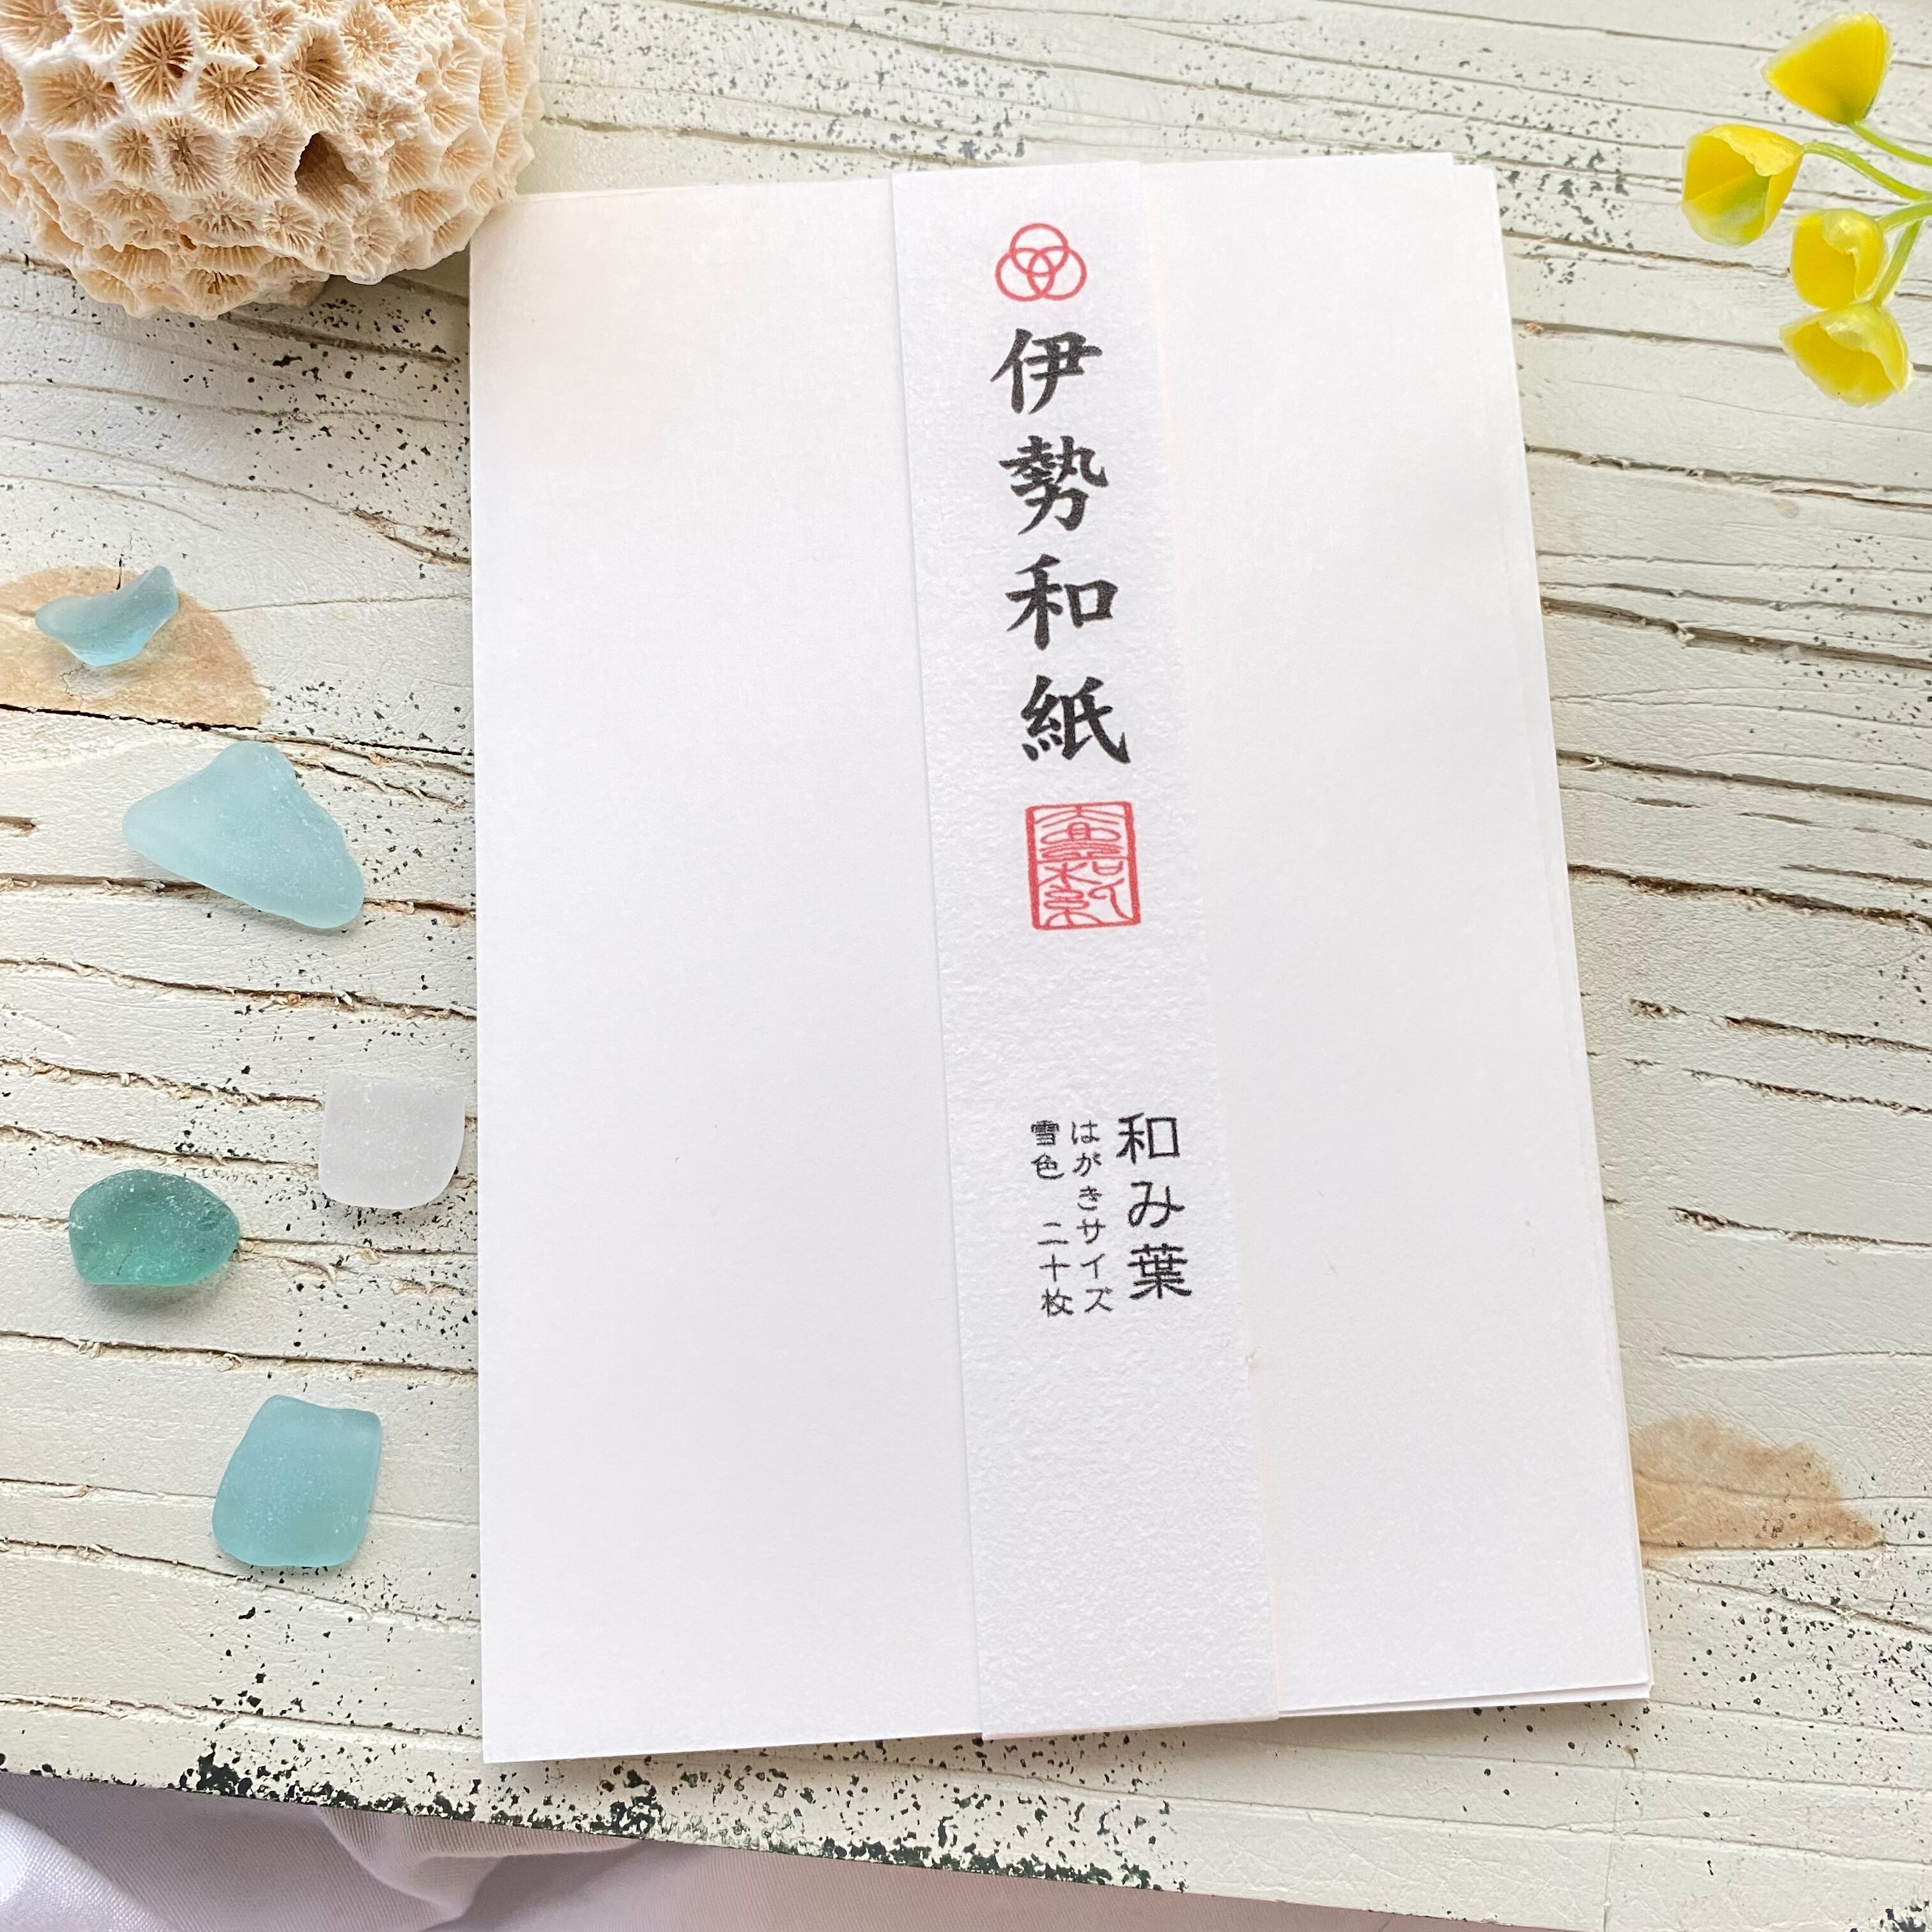 伊勢和紙
和み葉
はがきサイズ
雪色 二十枚